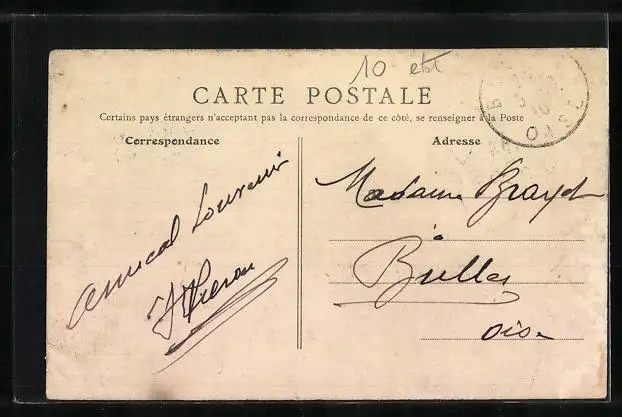 10 ebt
CARTE POSTALE
Certains pays étrangers n'acceptant pas la correspondance de ce côté, se renseigner à la Poste
Correspondance
Adresse
amical souvenir
Madame
à
Bulles
Oise
OISE